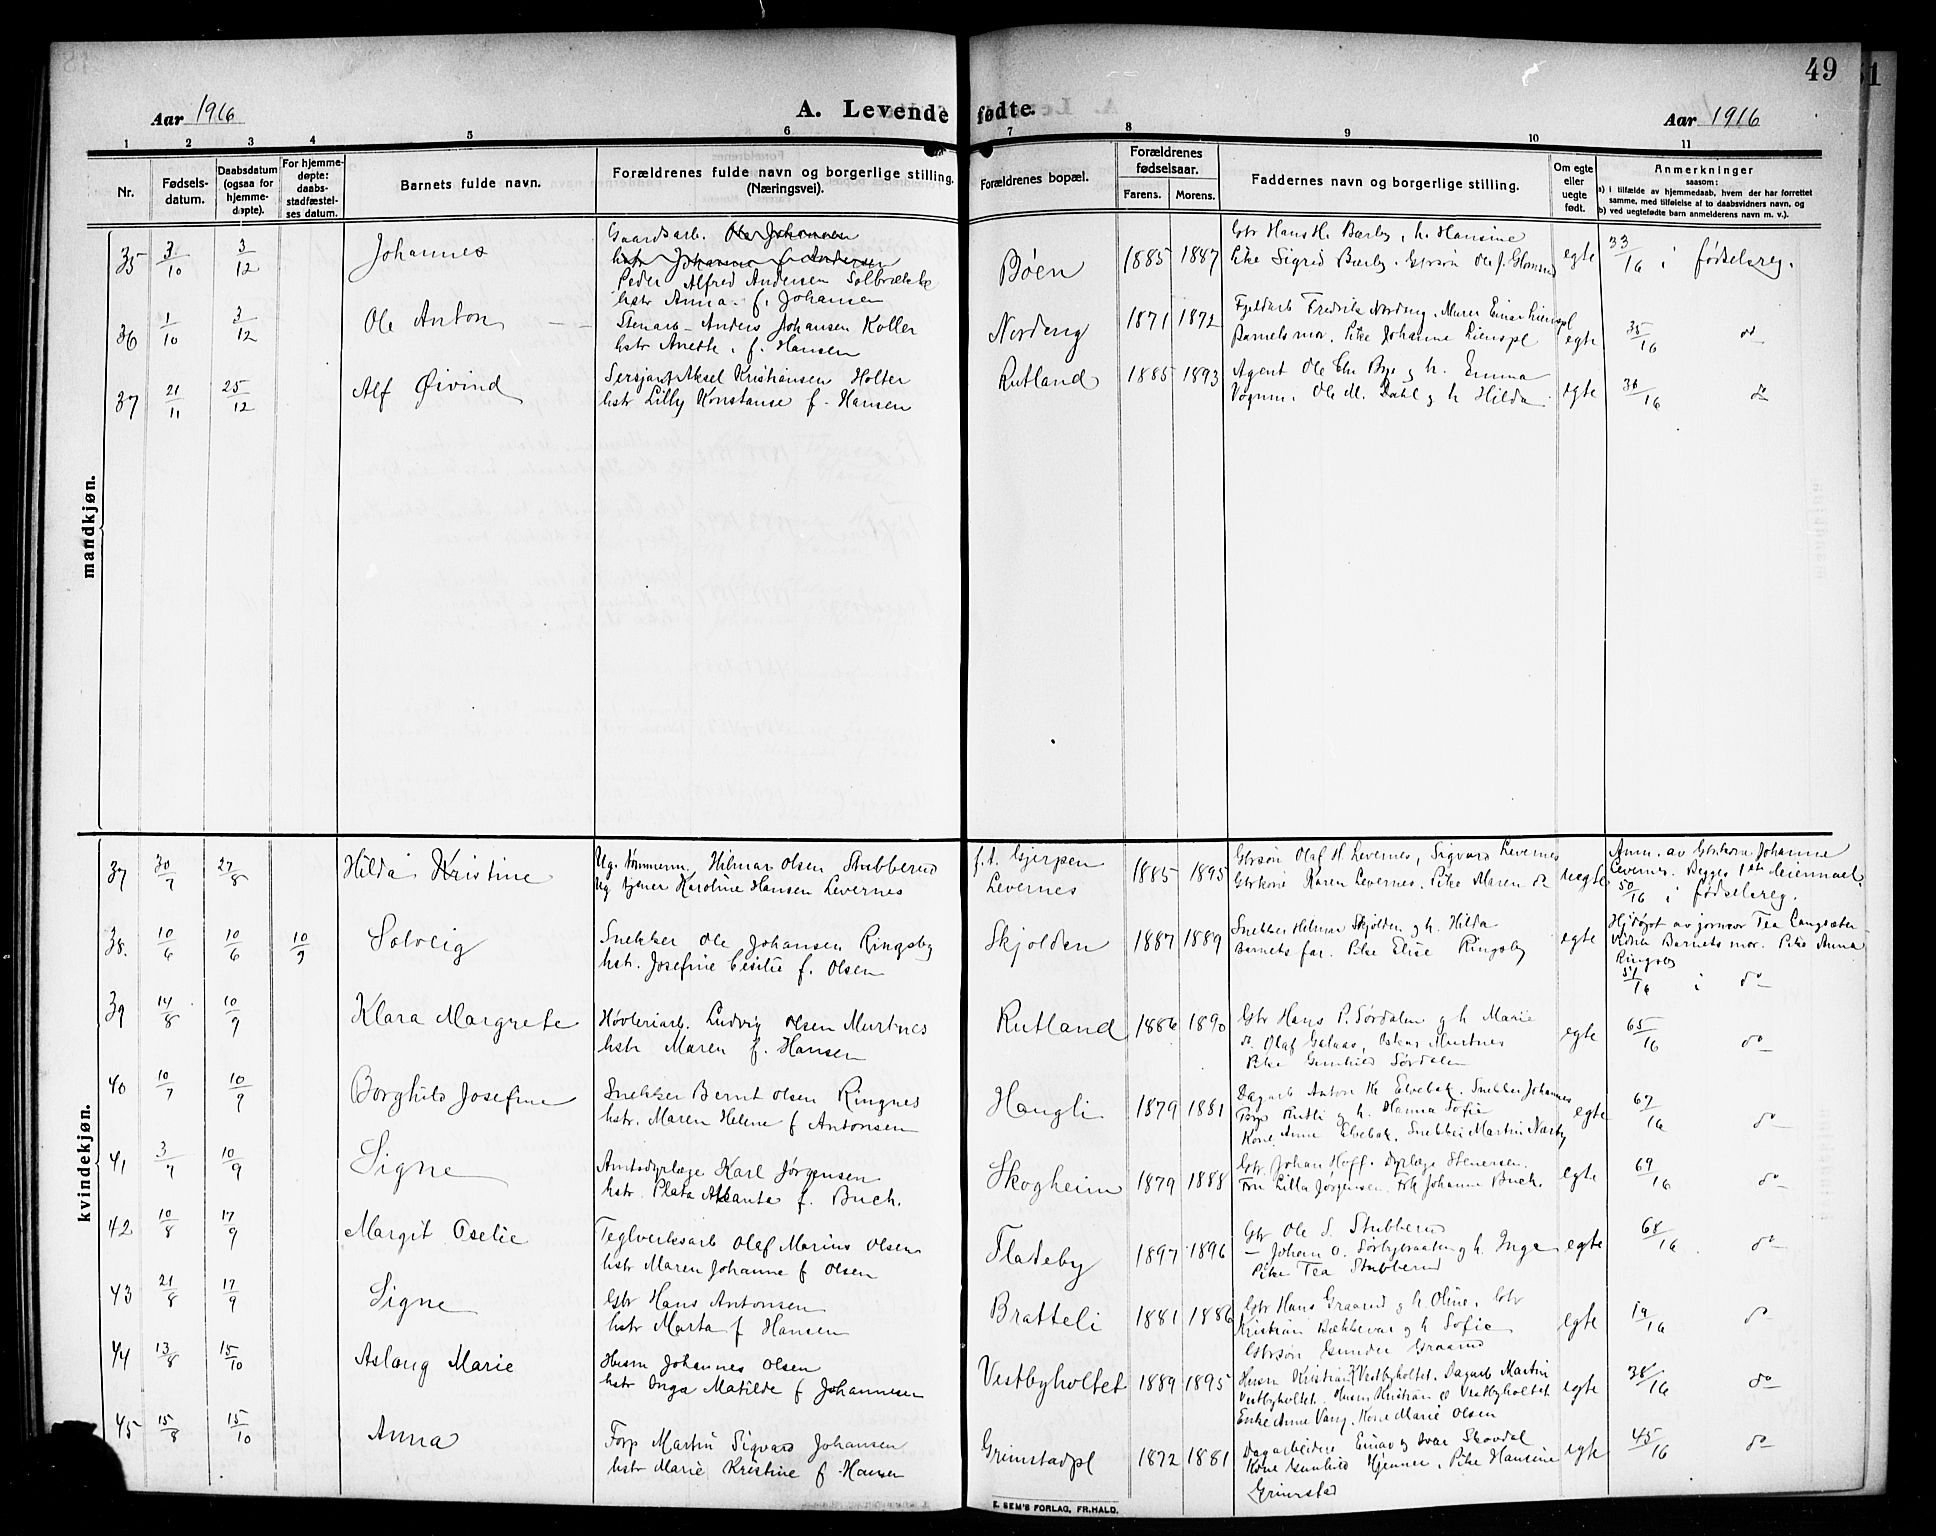 49
Aar 1916
A. Levende fødte.
Aar 1916
1 2 3 4 5 6 7 8 9 10 11
Nr.
Fødsels-
datum.
Daabsdatum
(ogsaa for
hjemme-
døpte).
For hjemme-
døpte:
daabs-
stadfæstel-
ses datum.
Barnets fulde navn.
Forældrenes fulde navn og borgerlige stilling.
(Næringsvei).
Forældrenes bopæl.
Forældrenes
fødselsaar.
Farens. Morens.
Faddernes navn og borgerlige stilling.
Om egte
eller
uegte
født.
Anmerkninger
saasom:
a) i tilfælde av hjemmedaab, hvem der har forrettet
samme, med tilføielse af to daabsvidners navn, og
b) ved uegtefødte barn anmelderens navn m. v.).
mandkjøn.
35 3/10 3/12 Johannes
Gaardsarb. Ole Johansen
hstr Johanne f. Andersen
Peder Alfred Andersen Solbrække
hstr Anna f. Johansen
Bøen 1885 1887
Gbr Hans H. Bærby, h. Hansine
Pike Sigrid Bærby. Gbrsøn Ole J.
egte 33/16 i fødselsreg.
36 1/10 3/12 Ole Anton
Stenarb Anders Johansen Koller
hstr Anette f. Hansen
Nordeng 1871 1872
Fjeldarb Fredrik Nordeng. Murer Einar Liens pl
Barnets mor. Pike Johanne Lienspl
egte 35/16 do
37 21/11 25/12 Alf Øivind
Sersjant Aksel Kristiansen Holter
hstr Lilly Konstanse f. Hansen
Rutland 1885 1893
Agent Ole Chr Bye og h. Emma
Vognm. Ole M. Dahl og h Hilda
egte 36/16 do
kvindekjøn.
37 30/7 27/8 Hilda Kristine
Ug. Tømmerm Hilmar Olsen Stubberud
Ug tjener Karoline Hansen Levernes
f.t. Gjerpen
Levernes
1885 1895
Gbrsøn Olaf H. Levernes, Sigvard Levernes
Gbrkone Karen Levernes. Pike Maren do
uegte
Anm. av Gbrkone Johanne
Levernes. Begges 1ste leiermaal.
50/16 i fødselsreg.
38. 10/6 10/6 10/9 Solveig
Snekker Ole Johansen Ringsby
hstr. Josefine Cesilie f. Olsen
Skjolden 1887 1889
Snekker Hilmar Skjolden og h. Hilda
Barnets far. Pike Elise Ringsby
egte
Hj.døpt av jormor Tea Langsæter
Vidner Barnets mor. Pike Anna
Ringsby
51/16 i do
39 14/8 10/9 Klara Margrete
Høvleriarb. Ludvig Olsen Murtnes
hstr Maren f. Hansen
Rutland 1886 1890
Gbr Hans P. Sørdalen og h Marie
do. Olaf Galaas, Oskar Murtnes
Pike Gunhild Sørdalen
egte 65/16 do
40 10/7 10/9 Borghild Josefine
Snekker Bernt Olsen Ringnes
hstr. Maren Helene f Antonsen
Haugli 1879 1881
Dagarb Anton M. Elvebak. Snekker Johannes
og h. Hanna Sofie
Kone Anne Elvebak, Snekker Martin Narby
egte 67/16 do
41 3/7 10/9 Signe
Amtsdyrlæge Karl Jørgensen
hstr. Plata Atlanta f. Buch.
Skogheim 1879 1888
Gbr. Johan Hoff. Dyrlæge Stenersen.
Fru Lilla Jørgensen. Frk Johanne Buch.
egte 69/16 do
42 10/8 17/9 Margit Oselie
Teglverksarb Olaf Marius Olsen
hstr Maren Johanne f Olsen
Flateby 1897 1896
Gbr Ole S. Stubberud
— Johan O. Sørbybraaten og h. Inga
Pike Tea Stubberud
egte 68/16 do
43 21/8 17/9 Signe
Gbr Hans Antonsen
hstr Marta f Hansen
Bratteli 1881 1886
Gbr Hans Graarud og h. Oline. Gbr
Kristian Bækkevar og h Sofie
Gbrsøn Gunder Graarud
egte 19/16 do
44 13/8 15/10 Aslaug Marie
Husm Johannes Olsen
hstr Inga Matilde f Johannesen
Vestbyholtet 1889 1895
Husm Kristian K Vestbyholtet. Dagarb Martin
Vestbyholtet. Husm Kristian O Vestbyholtet
Enke Anne Vang. Kone Marie Olsen
egte 38/16 do
45 15/8 15/10 Anna
Forp Martin Sigvard Johansen
hstr Marie Kristine f. Hansen
Grimstadpl 1872 1881
Dagarbeidere Einar og Ivar Skovdal
Kone Gunhild Hjenner. Pike Hansine
Grimstad
egte 45/16 do
E. SEM'S FORLAG, FR.HALD.